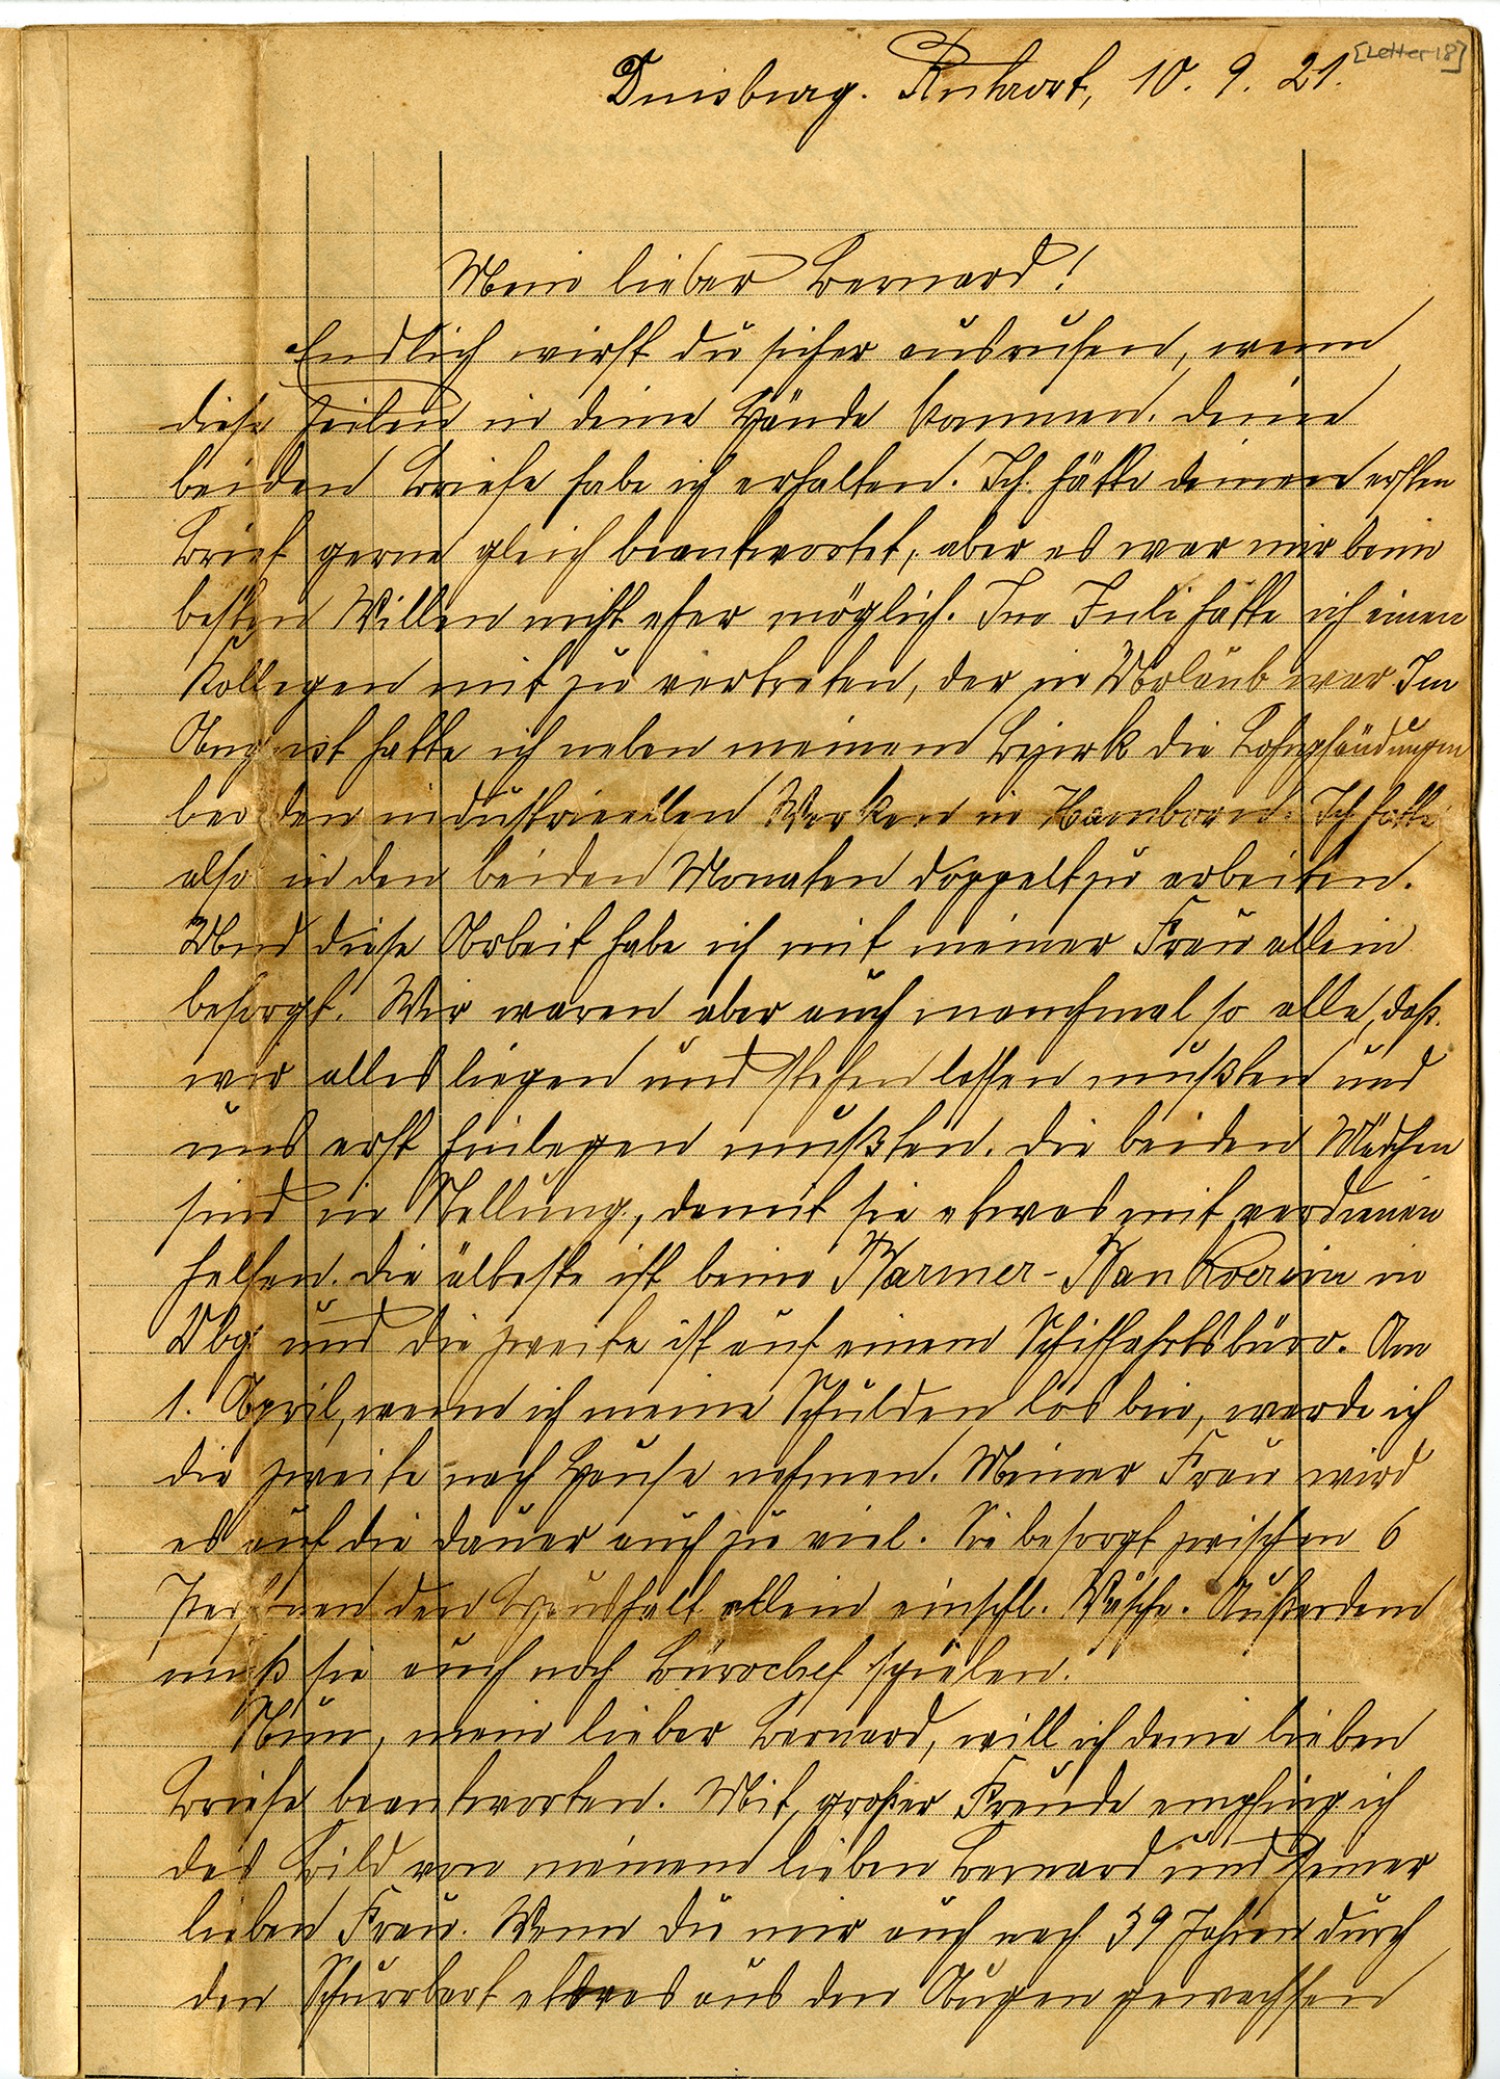 [Letter 18]
Duisburg-Ruhrort, 10. 9. 21.
Mein lieber Bernard!
Endlich wirst du sicher ausrufen, wenn
diese Zeilen in deine Hände kommen. Deine
beiden Briefe habe ich erhalten. Ich hätte deinen ersten
Brief gerne gleich beantwortet, aber es war mir beim
besten Willen nicht eher möglich. Im Juli hatte ich einen
Kollegen mit zu vertreten, der in Urlaub war. Im
August hatte ich neben meinem Bezirk die Lohnpfändungen
bei den industriellen Werken in Hamborn. Ich hatte
also in den beiden Monaten doppelt zu arbeiten.
Und diese Arbeit habe ich mit meiner Frau allein
besorgt. Wir waren aber auch manchmal so alle, daß
wir alles liegen und stehen lassen mußten und
uns erst hinlegen mußten. Die beiden Mädchen
sind in Stellung, damit sie etwas mit verdienen
helfen. Die älteste ist beim Barmer-Bankverein in
Dbg. und die zweite ist auf einem Schiffahrtsbüro. Am
1. April, wenn ich meine Schulden los bin, werde ich
die zweite nach Hause nehmen. Meiner Frau wird
es auf die Dauer auch zu viel. Sie besorgt zwischen 6
Personen den Haushalt allein einschl. Wäsche. Außerdem
muß sie auch noch Bürochef spielen.
Nun, mein lieber Bernard, will ich deine lieben
Briefe beantworten. Mit großer Freude empfing ich
das Bild von meinem lieben Bernard und seiner
lieben Frau. Wenn du mir auch nach 39 Jahren durch
den Schnurrbart etwas aus den Augen gewachsen